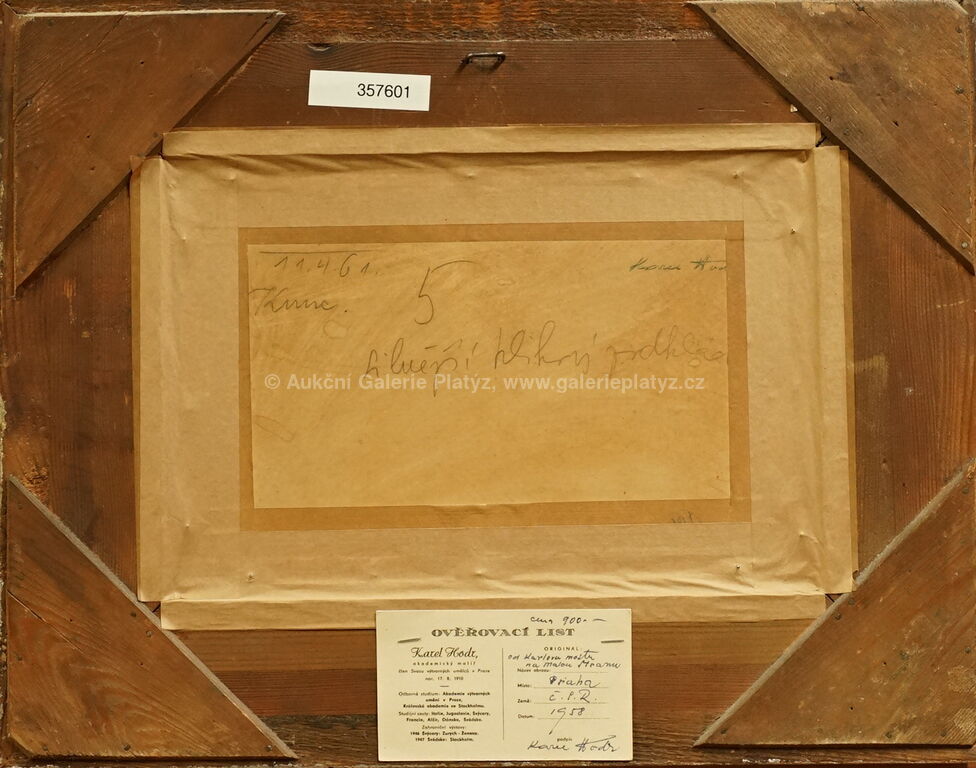 357601
11.4.61.
5
Karel Hod
silnější klikový podklad
© Aukční Galerie Platýz, www.galerieplatyz.cz
cena 900.-
OVĚŘOVACÍ LIST
Karel Hodr,
akademický malíř
člen Svazu výtvarných umělců v Praze
nar. 17. 8. 1910
Odborná studium: Akademie výtvarných
umění v Praze,
Královská akademie ve Stockholmu.
Studijní cesty: Italie, Jugoslavie, Švýcary,
Francie, Alžír, Dánsko, Švédsko.
Zahraniční výstavy:
1946 Švýcary: Zurych - Ženeva.
1947 Švédsko: Stockholm.
ORIGINAL
od Karlova mostu
na Malou Stranu
Název obrazu:
Místo: Praha
Země: Č.S.R.
Datum: 1958
podpis
Karel Hodr